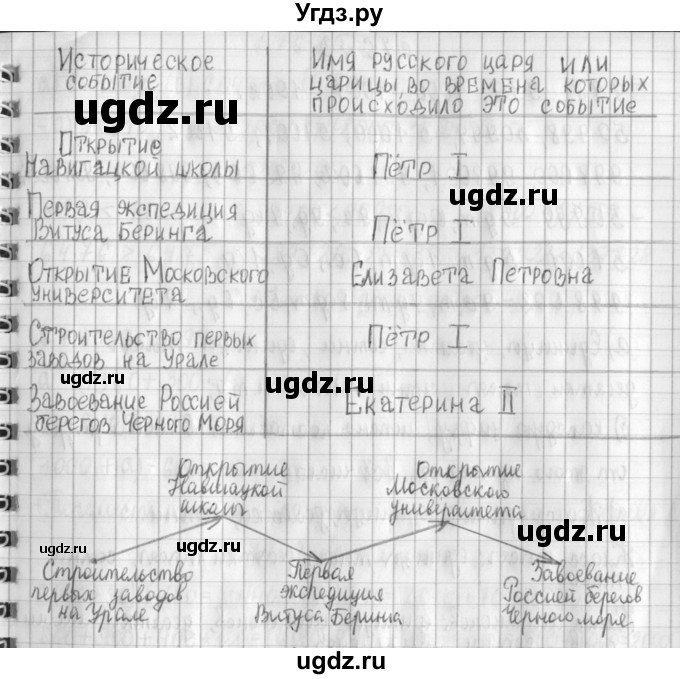 Угдз.ру
Историческое
событие
Имя русского царя или
царицы, во времена которых
происходило это событие
ugdz.ru
Открытие
Навигацкой школы
Пётр I
ugdz.ru
Первая экспедиция
Витуса Беринга
Пётр I
Открытие Московского
университета
Елизавета Петровна
Строительство первых
заводов на Урале
Пётр I
ugdz.ru
ugdz.ru
Завоевание Россией
берегов Чёрного Моря
Екатерина II
Открытие
Навигацкой
школы
Открытие
Московского
университета
ugdz.ru
ugdz.ru
ugdz.ru
Строительство
первых заводов
на Урале
Первая
экспедиция
Витуса Беринга
Завоевание
Россией берегов
Чёрного моря
ugdz.ru
ugdz.ru
ugdz.ru